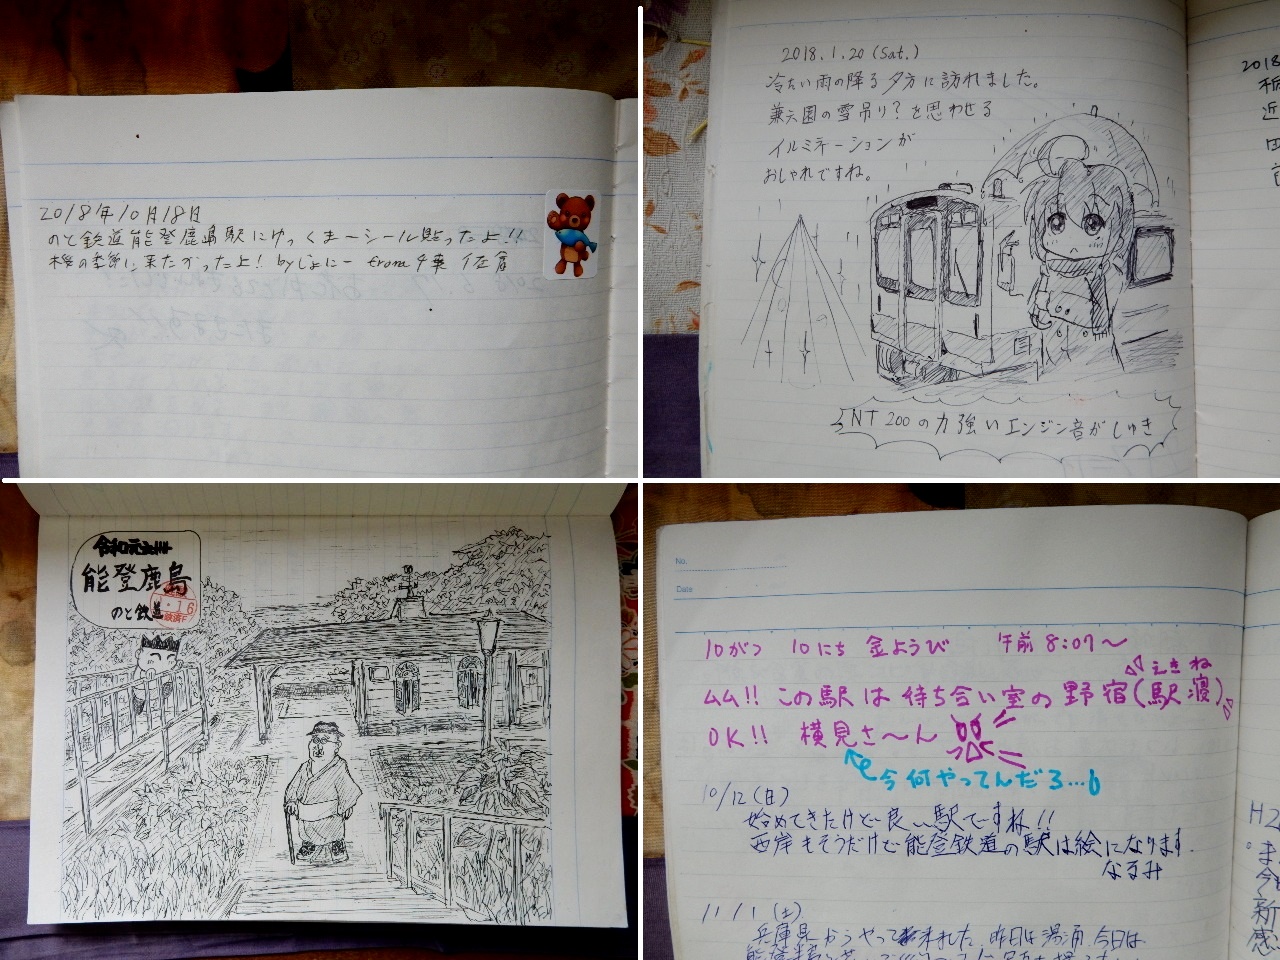 2018年10月18日
のと鉄道能登鹿島駅にゆっくまーシール貼ったよ!!
桜の季節に来たかったよ! byじょにー from千葉 佐倉
2018.1.20(Sat.)
冷たい雨の降る夕方に訪れました。
兼六園の雪吊り?を思わせる
イルミネーションが
おしゃれですね。
NT200の力強いエンジン音がしゅき
2018
近
田
令和元
能登鹿島
のと鉄道
16
No.
Date
10がつ 10にち 金ようび 午前 8:07〜
ムム!! この駅は待ち合い室の野宿(駅寝)
えきね
OK!! 横見さ〜ん
今何やってんだろ…
10/12(日)
始めてきたけど良い駅ですね!!
西岸もそうだけど能登鉄道の駅は絵になります.
なるみ
11/1(土)
兵庫県からやって来ました.昨日は湯涌 今日は
H2
。ま
今
新
感